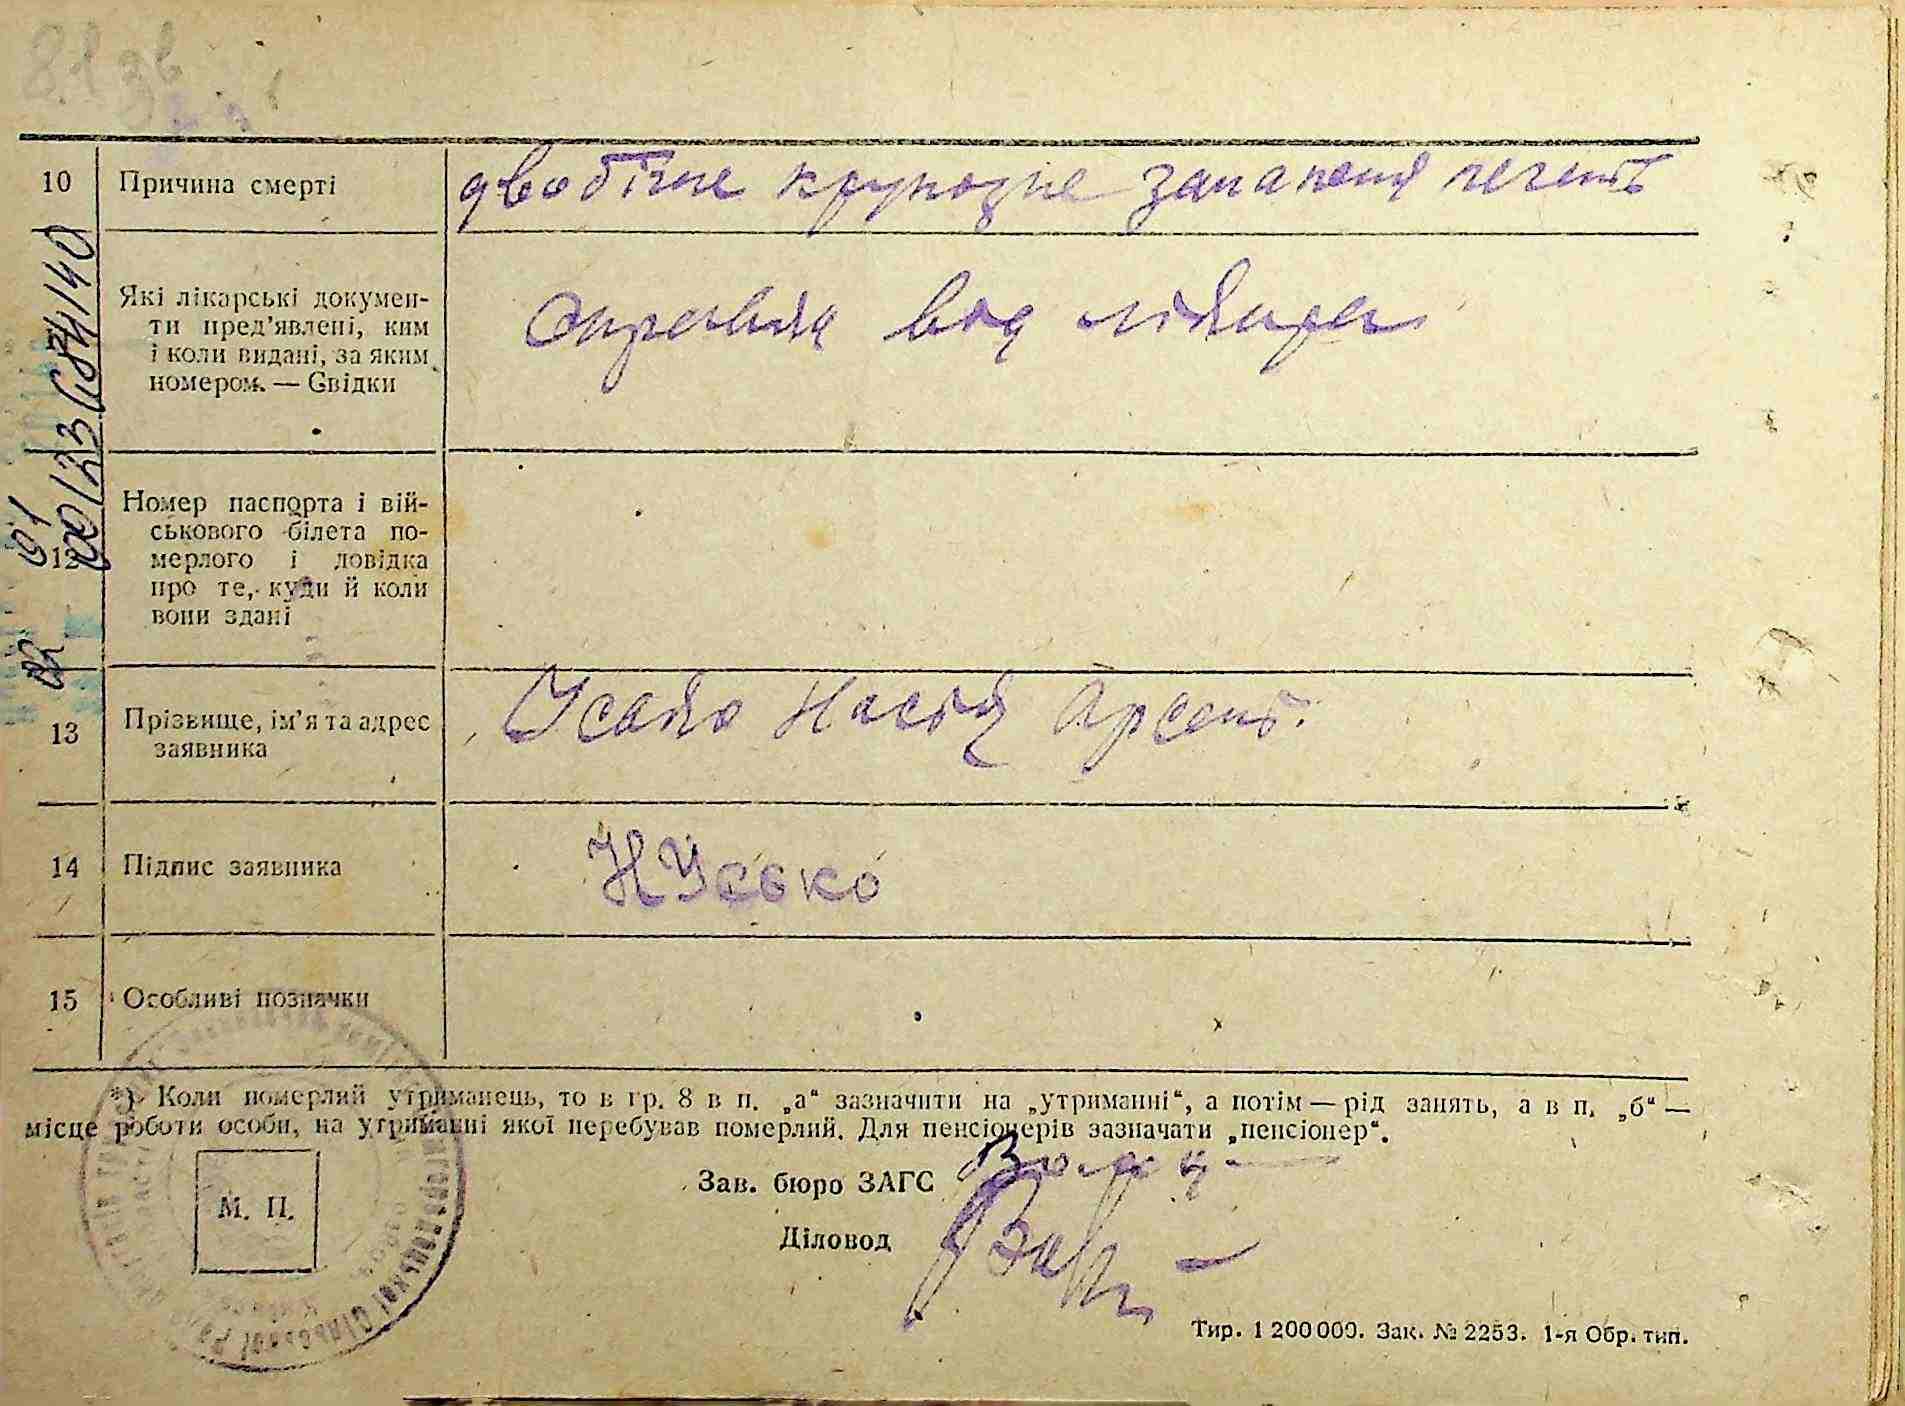 81 зв
10 Причина смерті двобічне крупозне запаленя легень
Які лікарські докумен-
ти пред’явлені, ким
і коли видані, за яким
номером. — Свідки
Справка від лікаря
12 Номер паспорта і вій-
ськового білета по-
мерлого і довідка
про те, куди й коли
вони здані
13 Прізвище, ім’я та адрес
заявника
Усько Настя Арсент.
14 Підпис заявника НУсько
15 Особливі позначки
*) Коли померлий утриманець, то в гр. 8 в п. „а“ зазначити на „утриманні“, а потім — рід занять, а в п. „б“ —
місце роботи особи, на утриманні якої перебував померлий. Для пенсіонерів зазначати „пенсіонер“.
Зав. бюро ЗАГС
М. П.
Діловод
Тир. 1 200 000. Зак. № 2253. 1-я Обр. тип.